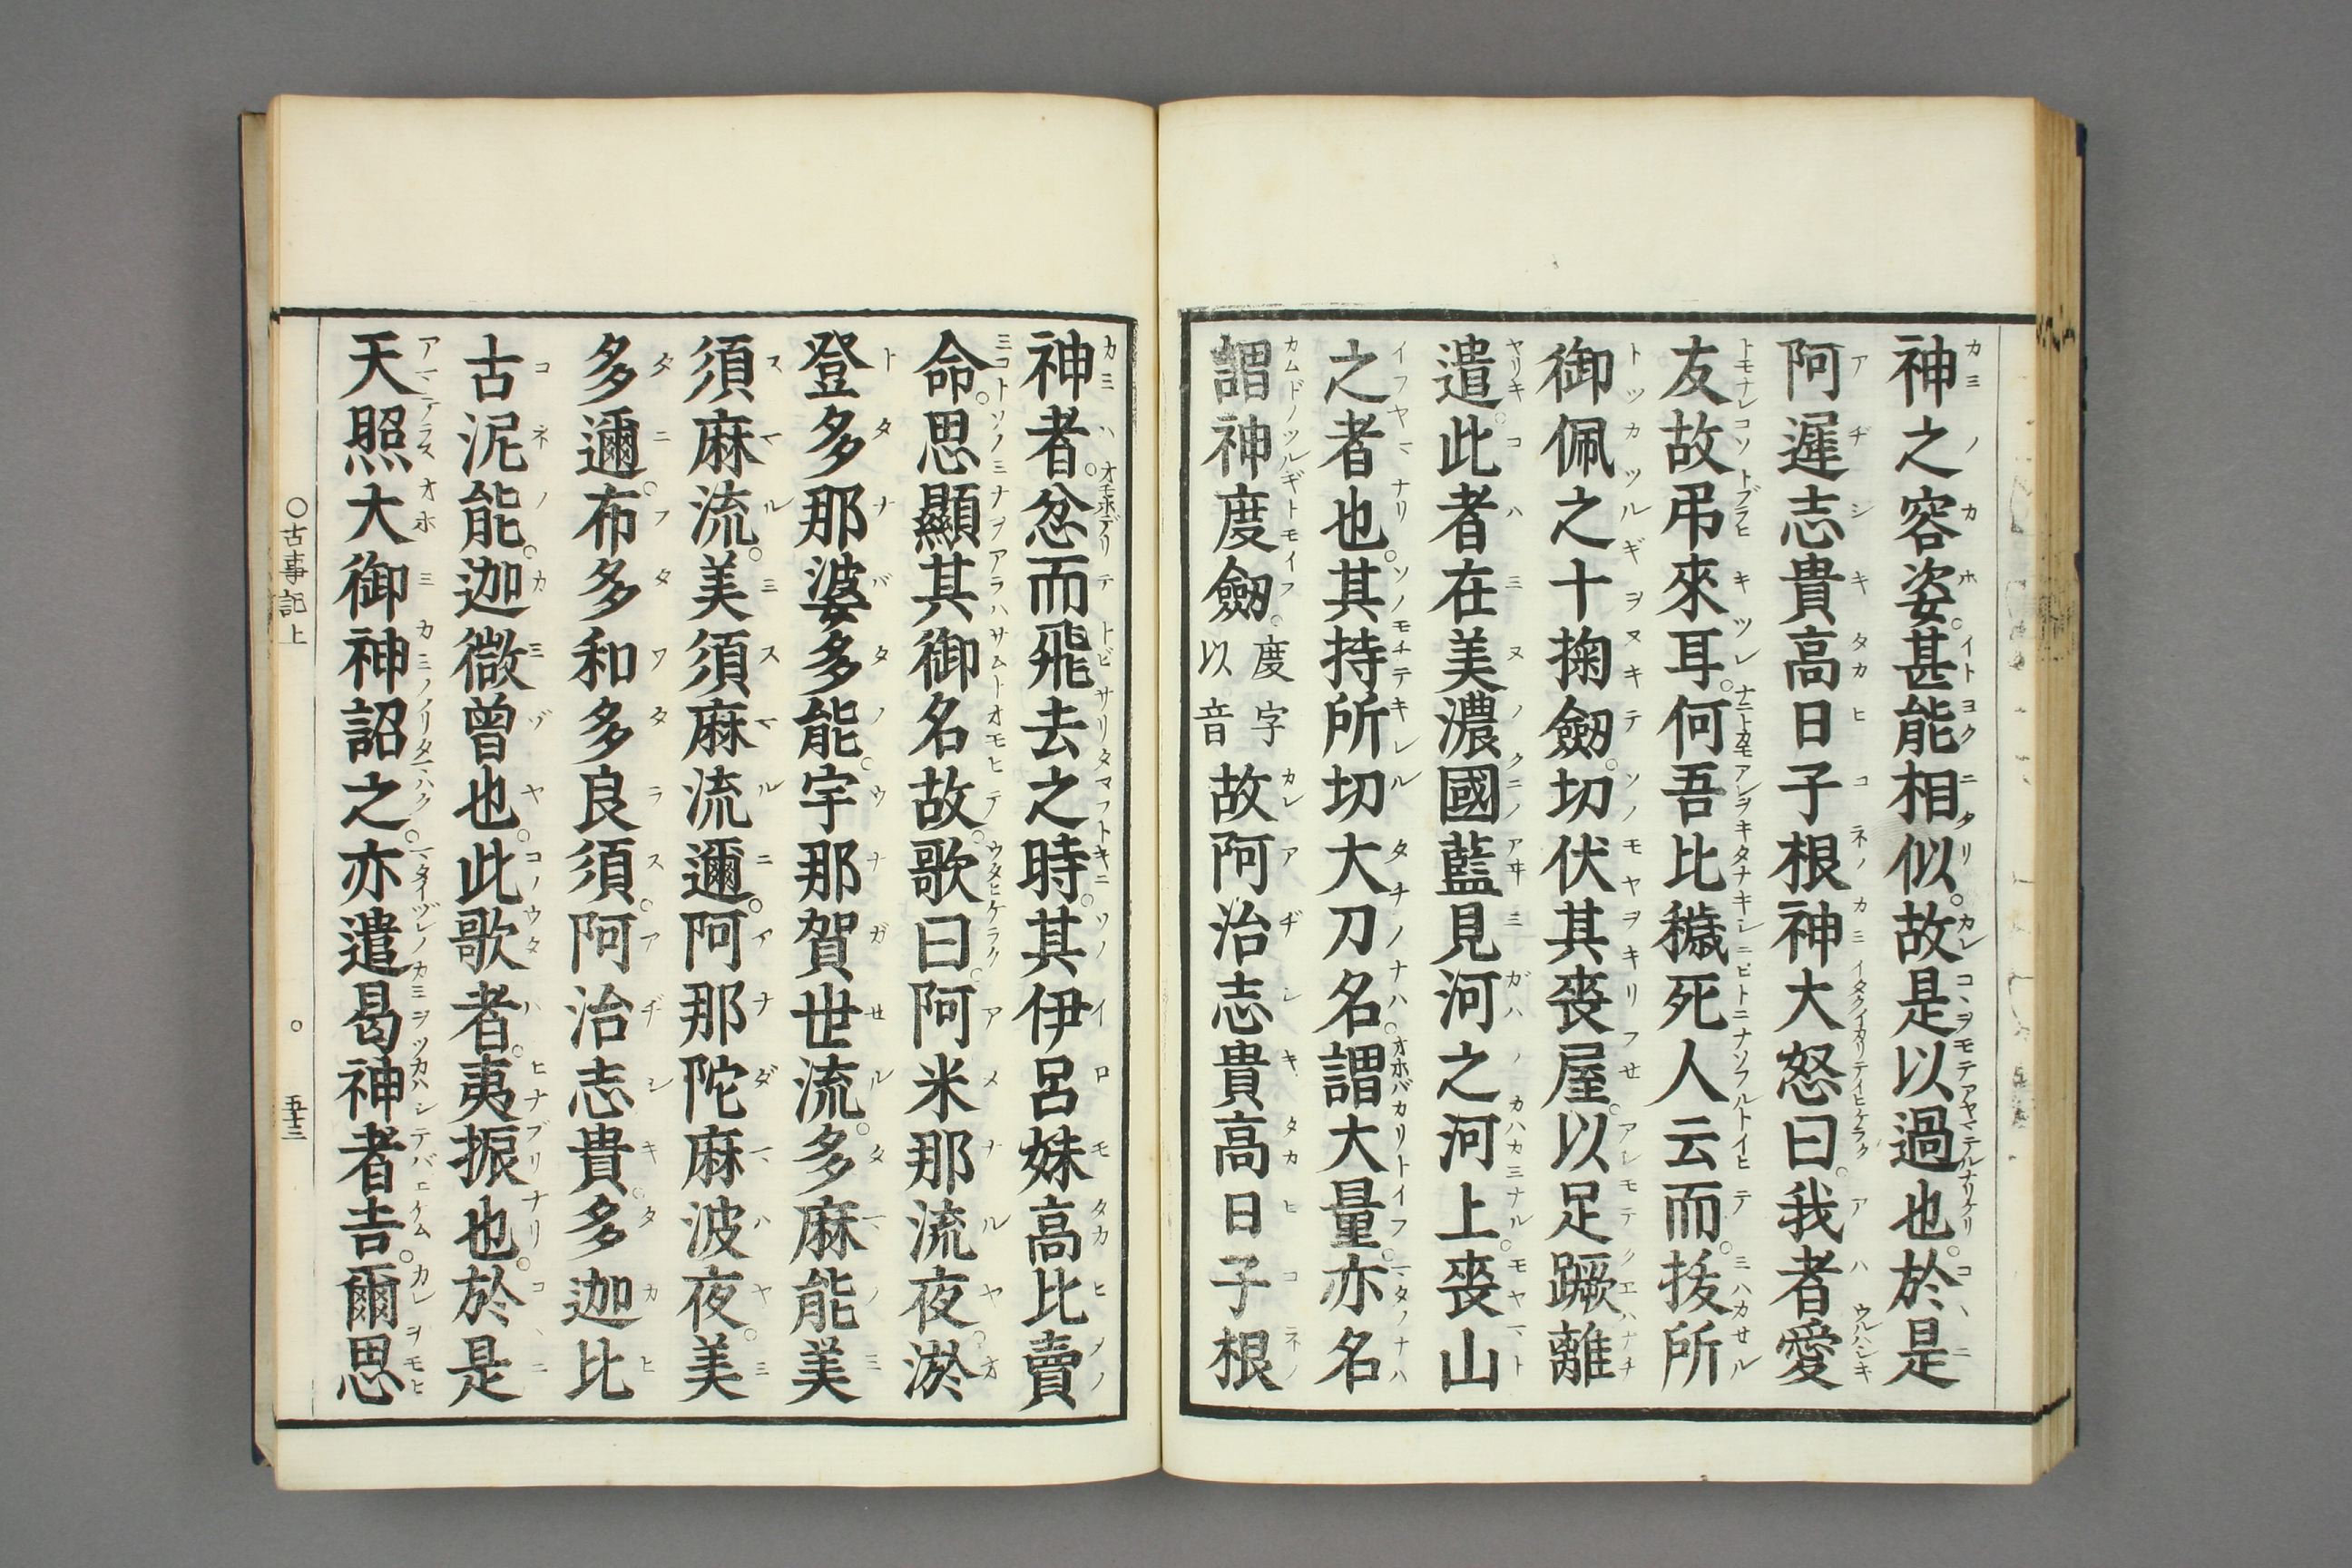 神之容姿甚能相似故是以過也於是
阿遲志貴高日子根神大怒曰我者愛
友故弔來耳何吾比穢死人云而拔所
御佩之十掬劒切伏其喪屋以足蹶離
遣此者在美濃國藍見河之河上喪山
之者也其持所切大刀名謂大量亦名
謂神度劒度字以音故阿治志貴高日子根
神者忿而飛去之時其伊呂妹高比賣
命思顯其御名故歌曰阿米那流夜淤
登多那婆多能宇那賀世流多麻能美
須麻流美須麻流邇阿那陀麻波夜美
多邇布多和多良須阿治志貴多迦比
古泥能迦微曾也此歌者夷振也於是
天照大御神詔之亦遣曷神者吉爾思
○古事記上 ○ 五十三